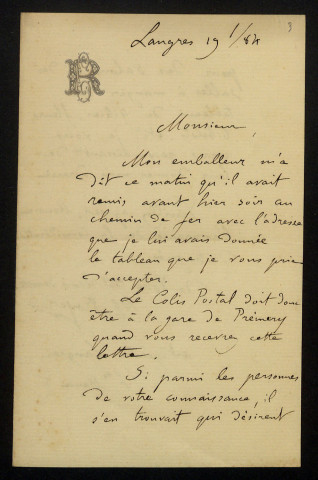 3
Langres 19 1/84
R
Monsieur,
Mon emballeur m'a
dit ce matin qu'il avait
remis avant hier soir au
chemin de fer avec l'adresse
que je lui avais donnée
le tableau que je vous prie
d'accepter.
Le Colis Postal doit donc
être à la gare de Prémery
quand vous recevrez cette
lettre.
Si parmi les personnes
de votre connaissance, il
s'en trouvait qui désirent